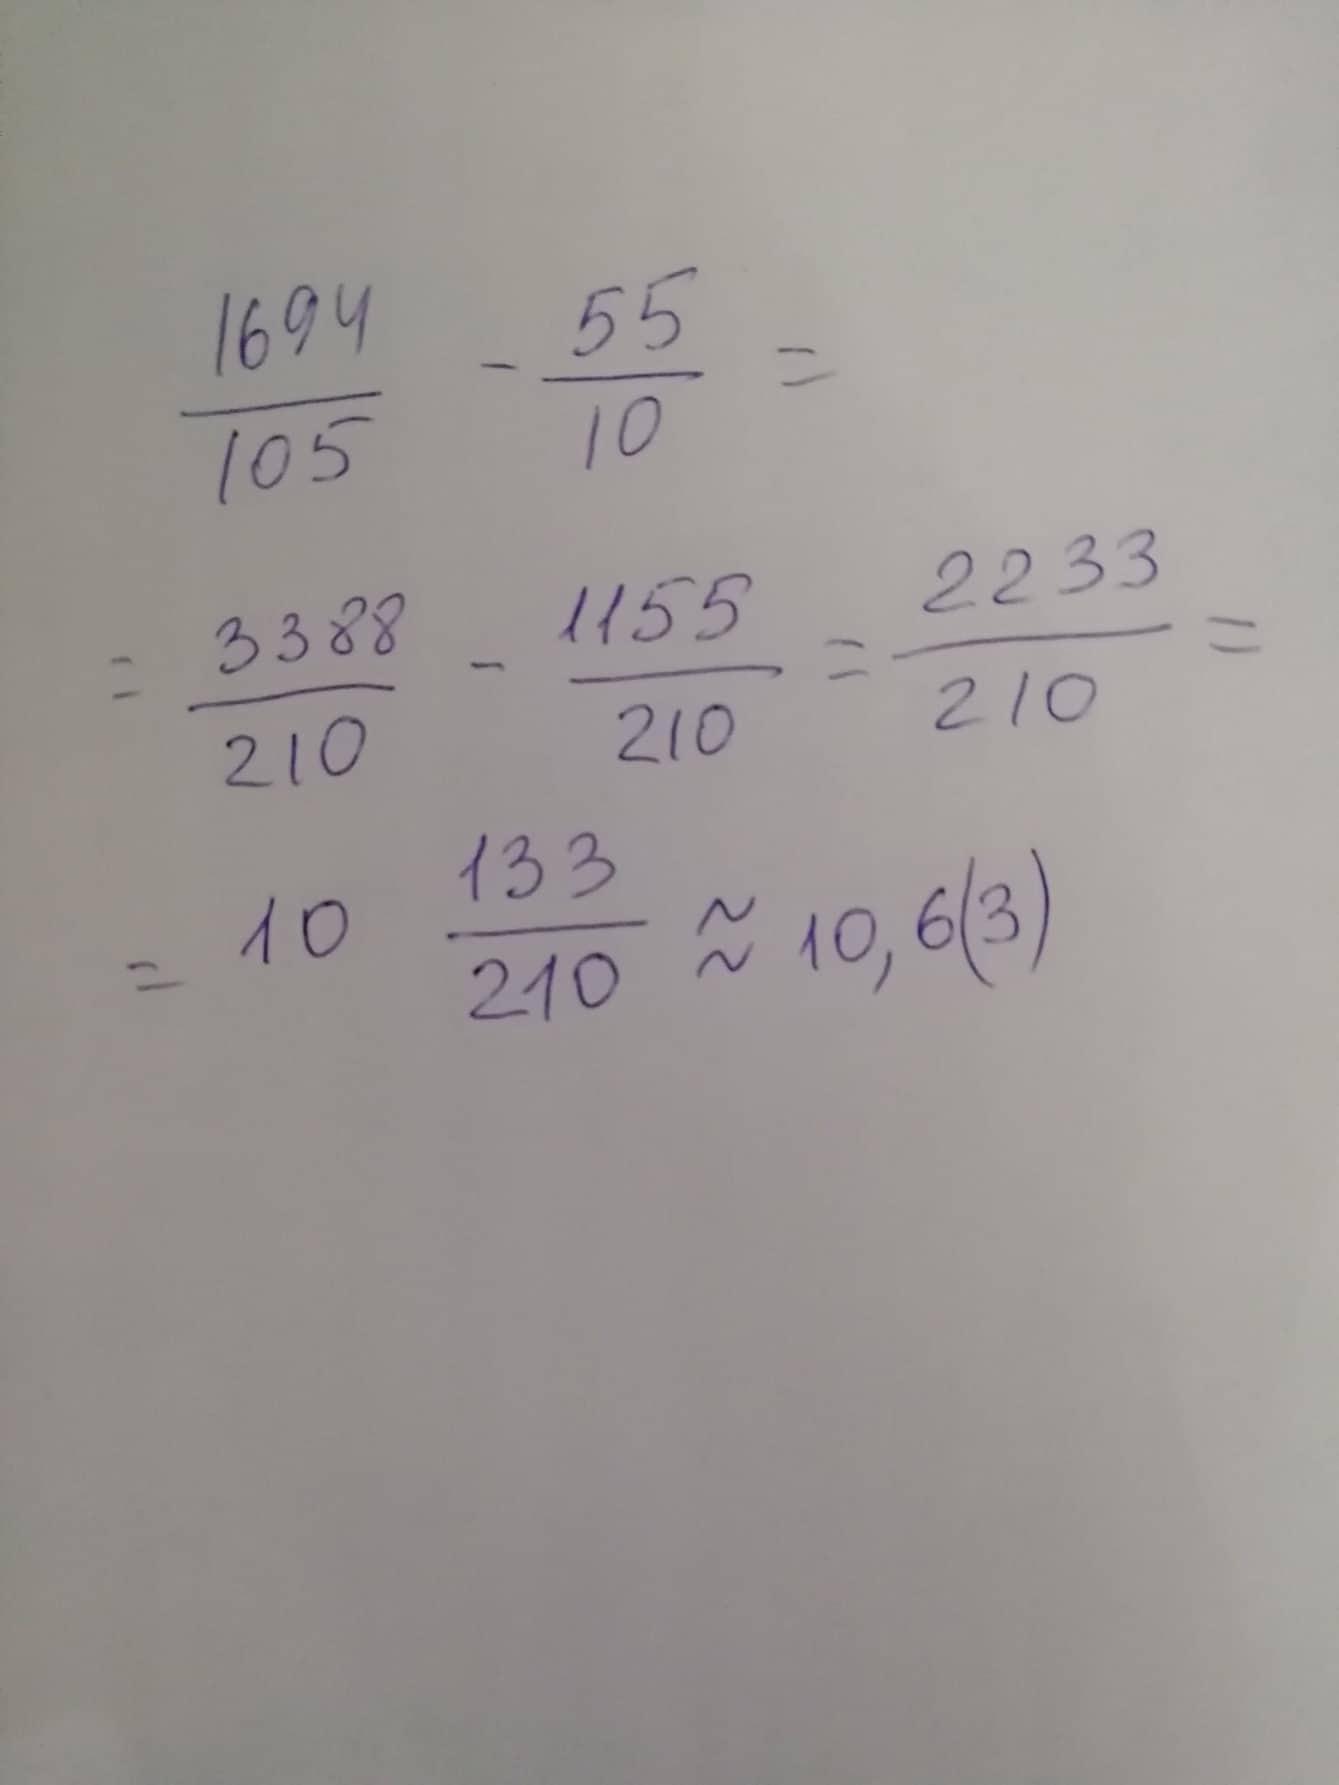 1694/105 - 55/10 =
= 3388/210 - 1155/210 = 2233/210 =
= 10 133/210 ≈ 10,6(3)